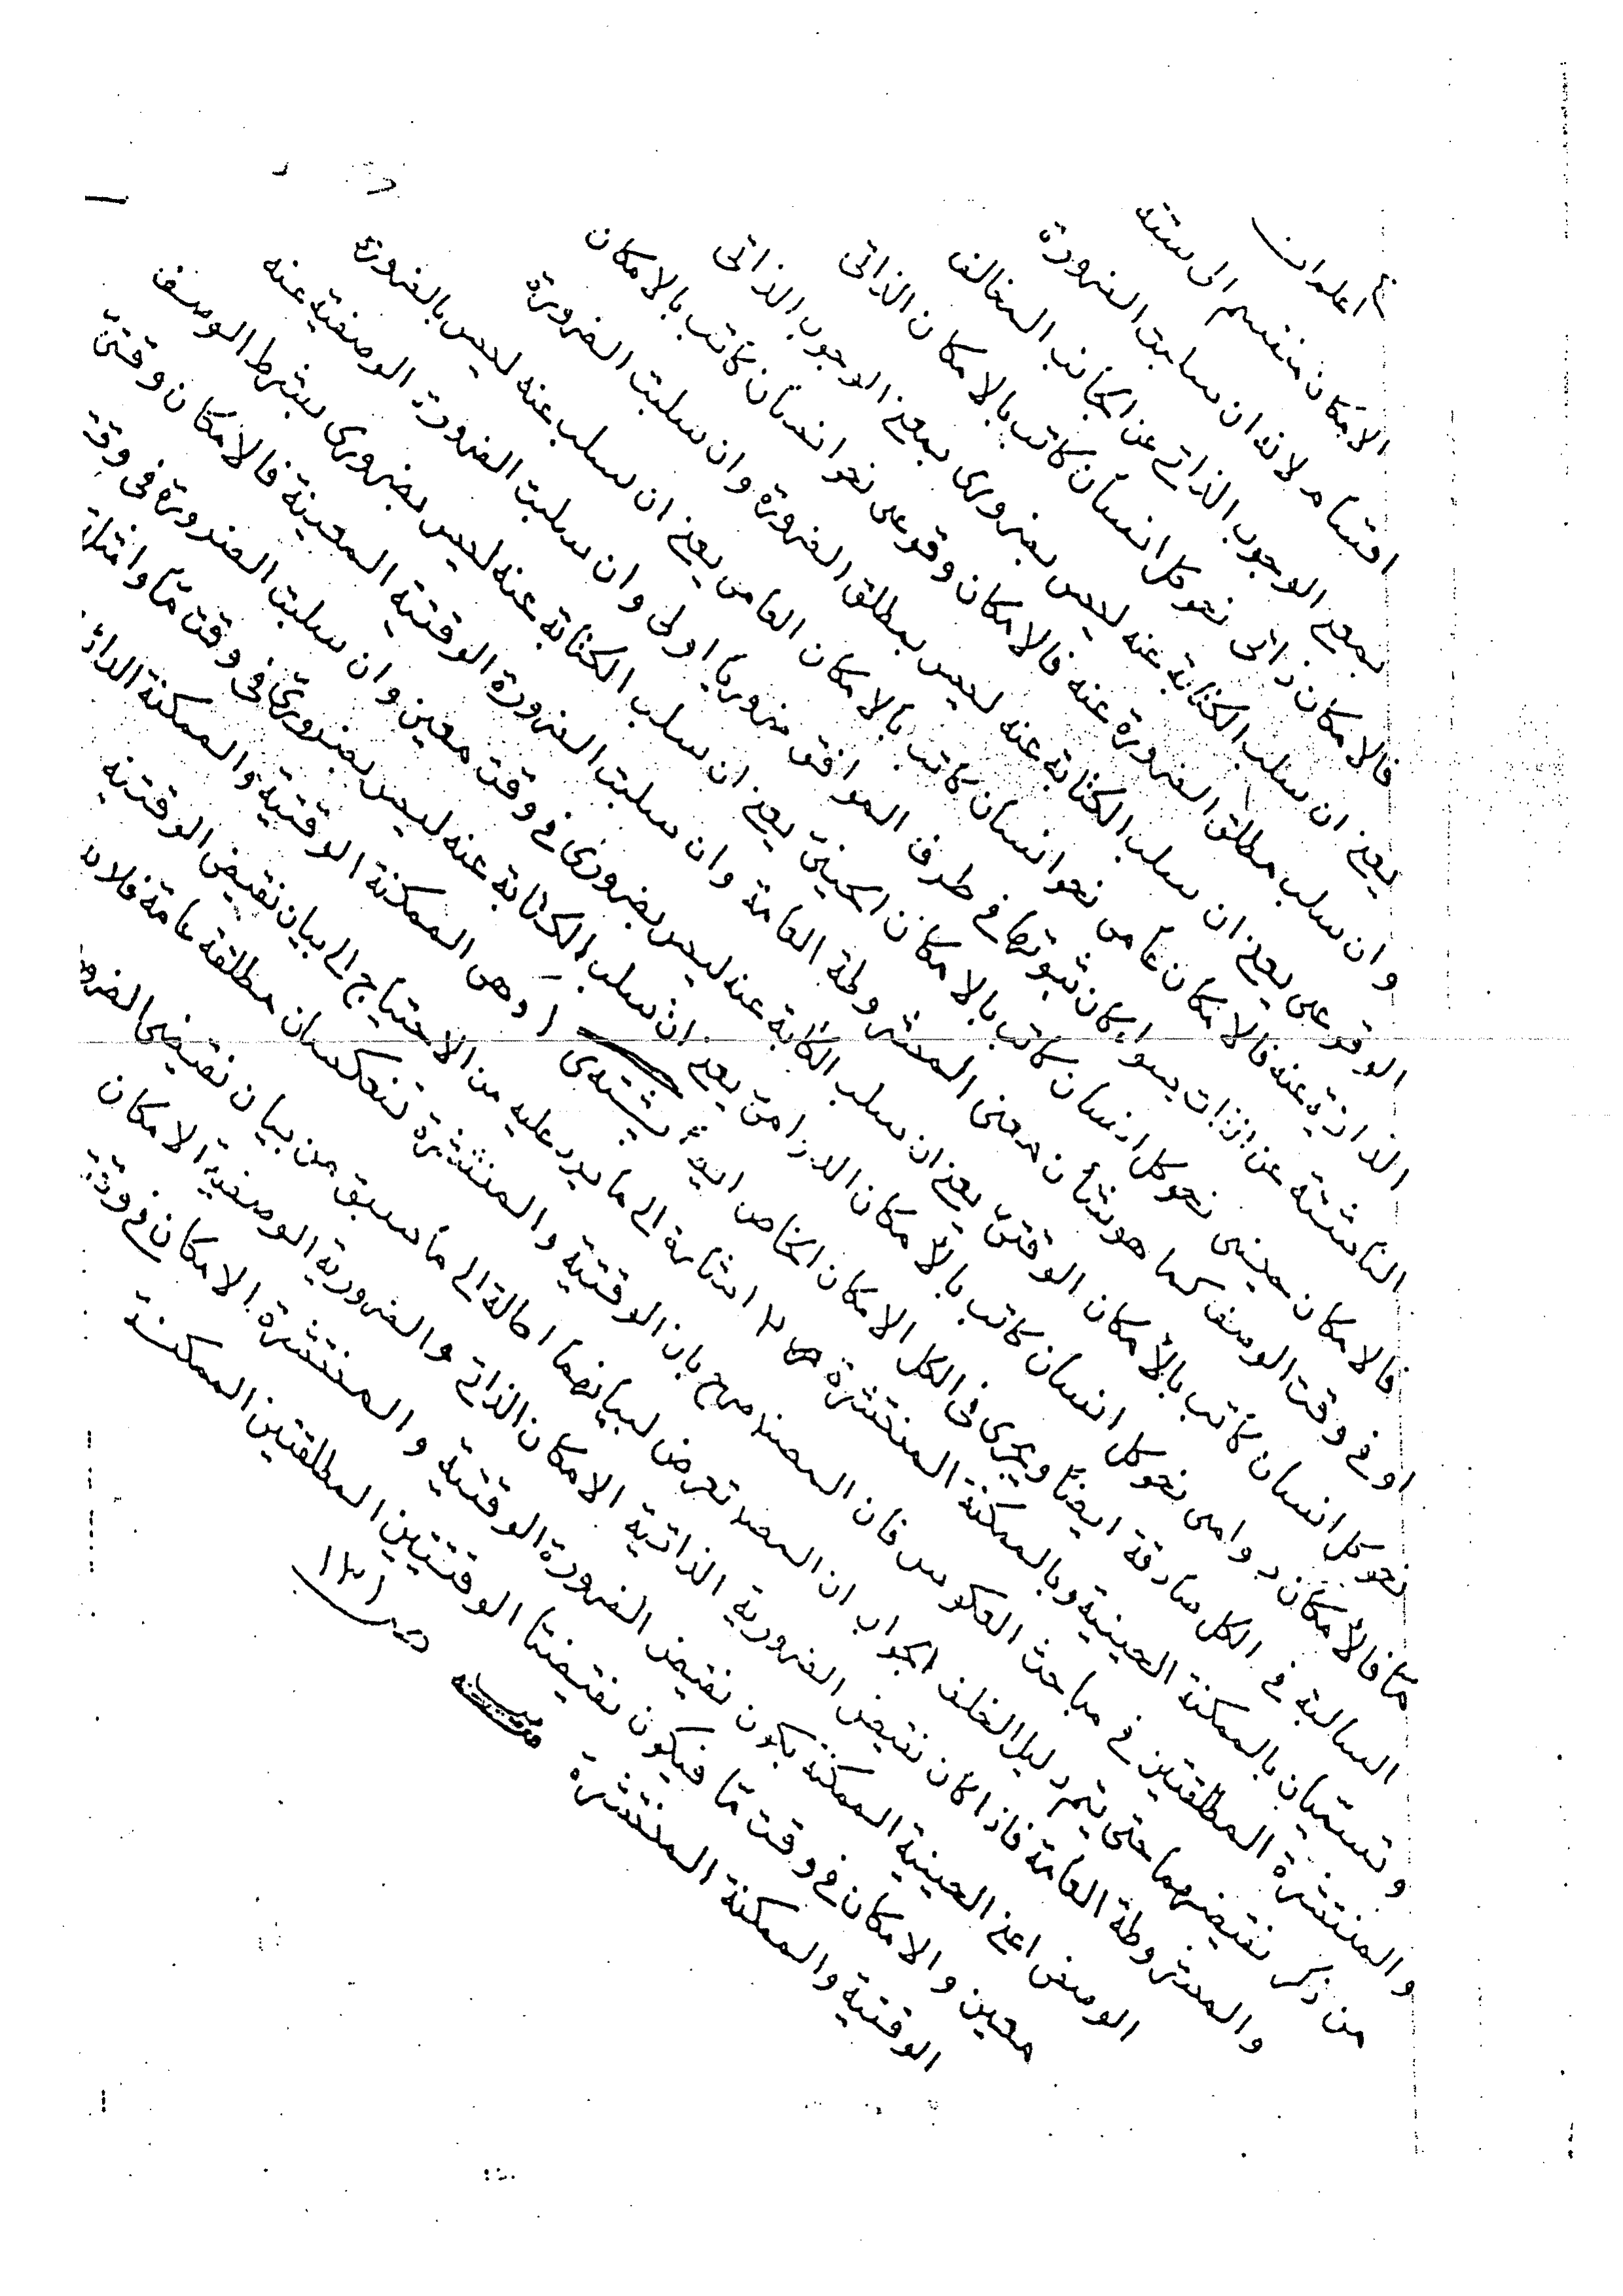 اعلم ان
الامكان منقسم الى ستة
اقسام لانه ان سلبت الضرورة
بمعنى الوجوب الذاتى عن الجانب المخالف
فالامكان ذاتى نحو كل انسان كاتب بالامكان الذاتى
يعنى ان سلب الكتابة عنه ليس بضرورى بمعنى الوجوب الذاتى
وان سلب مطلق الضرورة عنه فالامكان وقوعى نحو انسان كاتب بالامكان
الوقوعى يعنى ان سلب الكتابة عنه ليس بمطلق الضرورة وان سلبت الضرورة
الذاتية عنه فالامكان عامى نحو انسان كاتب بالامكان العامى يعنى ان سلب عنه ليس بالضرورة
الناشئة عن الذات سواء كان ثبوتها فى طرف الموافق ضروريا اولى وان سلبت الضرورة الوصفية عنه
فالامكان حينى نحو كل انسان كاتب بالامكان الحينى يعنى ان سلب الكتابة عنه ليس بضرورى بشرط الوصف
او فى وقت الوصف كما هو شأن معنى المشروطة العامة وان سلبت الضرورة الوقتية المعينة فالامكان وقتى
نحو كل انسان كاتب بالامكان الوقتى يعنى ان سلب الكتابة عنه ليس بضرورى فى وقت معين وان سلبت الضرورة فى وقت
ما فالامكان دوامى نحو كل انسان كاتب بالامكان الدوامى يعنى ان سلب الكتابة عنه ليس بضرورى فى وقت ما وامثلة
السالبة فى الكل صادقة ايضا ويجرى فى الكل الامكان الخاص ايضا وهى الممكنة الوقتية والممكنة
وتسميان بالممكنة الحينية وبالممكنة المنتشرة اشارة الى ما يرد عليه من الاحتياج الى بيان نقيض الوقتية
والمنتشرة المطلقتين فى مباحث العكوس فان المصنف صرح بان الوقتية والمنتشرة تنعكسان مطلقة عامة فلا بد
من ذكر نقيضهما حتى يتم دليل الخلف الجواب ان المصنف تعرض لبيانهما احالة الى ما سبق من بيان نقيضى
والمشروطة العامة فاذا كان نقيض الضرورية الذاتية الامكان الذاتى والضرورية الوصفية الامكان
الوصفى اعنى الحينية الممكنة يكون نقيض الضرورة الوقتية والمنتشرة الامكان فى وقت
معين والامكان فى وقت ما فيكون نقيضتا الوقتيتين المطلقتين الممكنة
الوقتية والممكنة المنتشرة